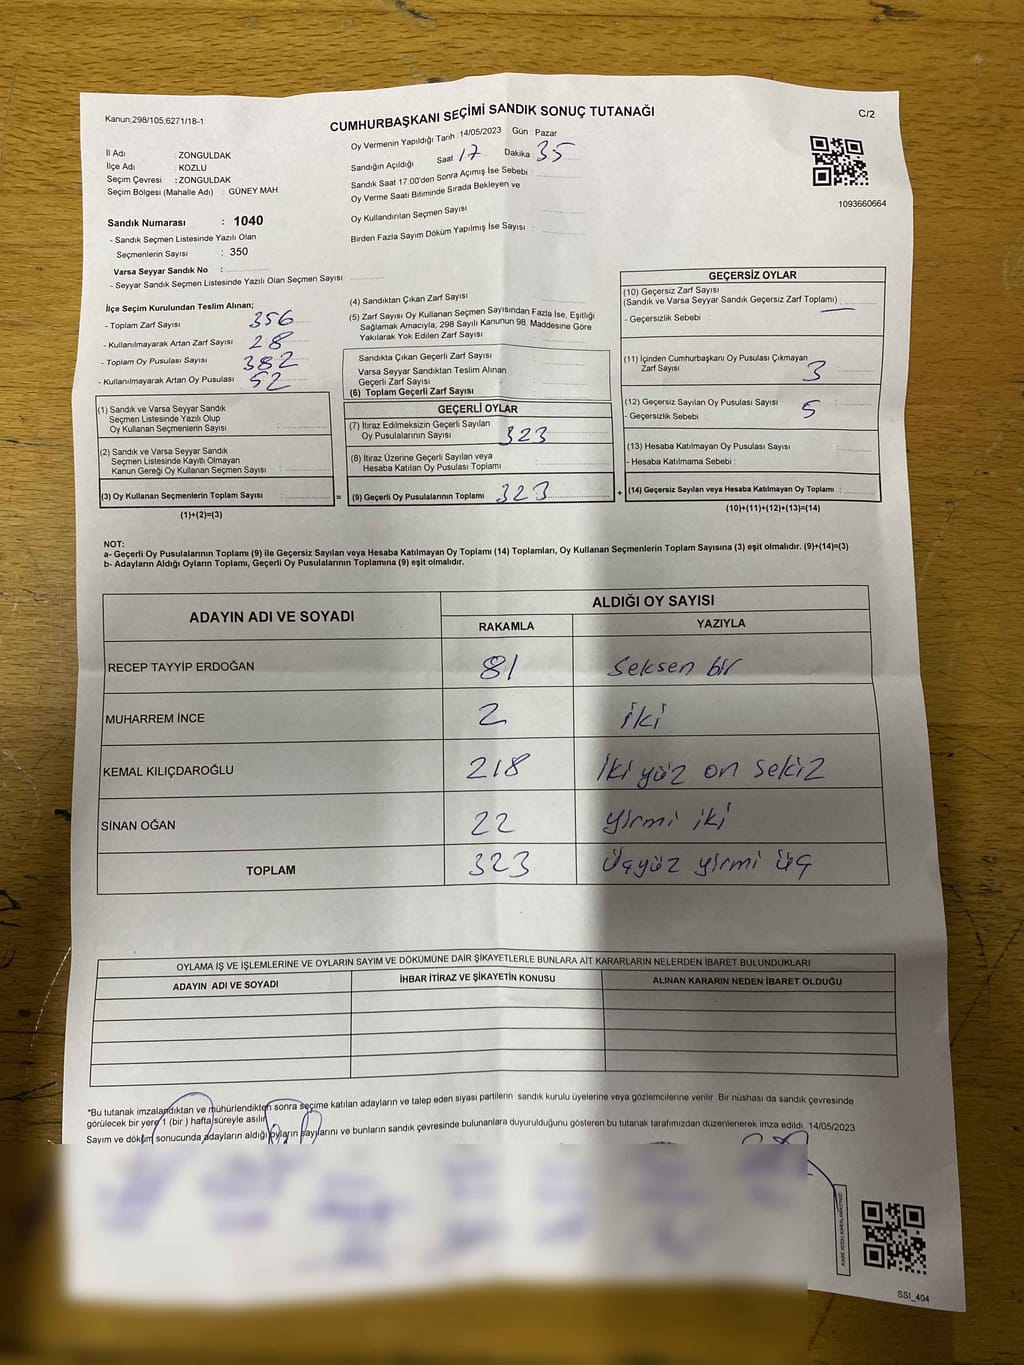 Kanun;298/105,6271/18-1
CUMHURBAŞKANI SEÇİMİ SANDIK SONUÇ TUTANAĞI
C/2
İl Adı : ZONGULDAK
İlçe Adı : KOZLU
Seçim Çevresi : ZONGULDAK
Seçim Bölgesi (Mahalle Adı) : GÜNEY MAH.
Oy Vermenin Yapıldığı Tarih : 14/05/2023 Gün : Pazar
Sandığın Açıldığı Saat 17 Dakika 35
Sandık Saat 17:00'den Sonra Açımış İse Sebebi :
Oy Verme Saati Bitiminde Sırada Bekleyen ve
Oy Kullandırılan Seçmen Sayısı
Birden Fazla Sayım Döküm Yapılmış İse Sayısı :
1093660664
Sandık Numarası : 1040
- Sandık Seçmen Listesinde Yazılı Olan
Seçmenlerin Sayısı : 350
Varsa Seyyar Sandık No :
- Seyyar Sandık Seçmen Listesinde Yazılı Olan Seçmen Sayısı:
İlçe Seçim Kurulundan Teslim Alınan;
- Toplam Zarf Sayısı 356
- Kullanılmayarak Artan Zarf Sayısı 28
- Toplam Oy Pusulası Sayısı 382
- Kullanılmayarak Artan Oy Pusulası 52
(1) Sandık ve Varsa Seyyar Sandık
Seçmen Listesinde Yazılı Olup
Oy Kullanan Seçmenlerin Sayısı :
(2) Sandık ve Varsa Seyyar Sandık
Seçmen Listesinde Kayıtlı Olmayan
Kanun Gereği Oy Kullanan Seçmen Sayısı :
(3) Oy Kullanan Seçmenlerin Toplam Sayısı : =
(1)+(2)=(3)
(4) Sandıktan Çıkan Zarf Sayısı
(5) Zarf Sayısı Oy Kullanan Seçmen Sayısından Fazla İse, Eşitliği
Sağlamak Amacıyla, 298 Sayılı Kanunun 98. Maddesine Göre
Yakılarak Yok Edilen Zarf Sayısı :
Sandıkta Çıkan Geçerli Zarf Sayısı
Varsa Seyyar Sandıktan Teslim Alınan
Geçerli Zarf Sayısı
(6) Toplam Geçerli Zarf Sayısı
GEÇERLİ OYLAR
(7) İtiraz Edilmeksizin Geçerli Sayılan
Oy Pusulalarının Sayısı 323
(8) İtiraz Üzerine Geçerli Sayılan veya
Hesaba Katılan Oy Pusulası Toplamı
(9) Geçerli Oy Pusulalarının Toplamı 323 +
GEÇERSİZ OYLAR
(10) Geçersiz Zarf Sayısı
(Sandık ve Varsa Seyyar Sandık Geçersiz Zarf Toplamı) : —
- Geçersizlik Sebebi :
(11) İçinden Cumhurbaşkanı Oy Pusulası Çıkmayan
Zarf Sayısı 3
(12) Geçersiz Sayılan Oy Pusulası Sayısı : 5
- Geçersizlik Sebebi :
(13) Hesaba Katılmayan Oy Pusulası Sayısı
- Hesaba Katılmama Sebebi :
(14) Geçersiz Sayılan veya Hesaba Katılmayan Oy Toplamı :
(10)+(11)+(12)+(13)=(14)
NOT:
a- Geçerli Oy Pusulalarının Toplamı (9) ile Geçersiz Sayılan veya Hesaba Katılmayan Oy Toplamı (14) Toplamları, Oy Kullanan Seçmenlerin Toplam Sayısına (3) eşit olmalıdır. (9)+(14)=(3)
b- Adayların Aldığı Oyların Toplamı, Geçerli Oy Pusulalarının Toplamına (9) eşit olmalıdır.
ADAYIN ADI VE SOYADI
ALDIĞI OY SAYISI
RAKAMLA YAZIYLA
RECEP TAYYİP ERDOĞAN 81 Seksen bir
MUHARREM İNCE 2 iki
KEMAL KILIÇDAROĞLU 218 İki yüz on sekiz
SİNAN OĞAN 22 yirmi iki
TOPLAM 323 Üçyüz yirmi üç
OYLAMA İŞ VE İŞLEMLERİNE VE OYLARIN SAYIM VE DÖKÜMÜNE DAİR ŞİKAYETLERLE BUNLARA AİT KARARLARIN NELERDEN İBARET BULUNDUKLARI
ADAYIN ADI VE SOYADI İHBAR İTİRAZ VE ŞİKAYETİN KONUSU ALINAN KARARIN NEDEN İBARET OLDUĞU
*Bu tutanak imzalandıktan ve mühürlendikten sonra seçime katılan adayların ve talep eden siyasi partilerin sandık kurulu üyelerine veya gözlemcilerine verilir. Bir nüshası da sandık çevresinde
görülecek bir yere 1 (bir) hafta süreyle asılır.
Sayım ve döküm sonucunda adayların aldığı oyların sayılarını ve bunların sandık çevresinde bulunanlara duyurulduğunu gösteren bu tutanak tarafımızdan düzenlenerek imza edildi. 14/05/2023
SSI_404